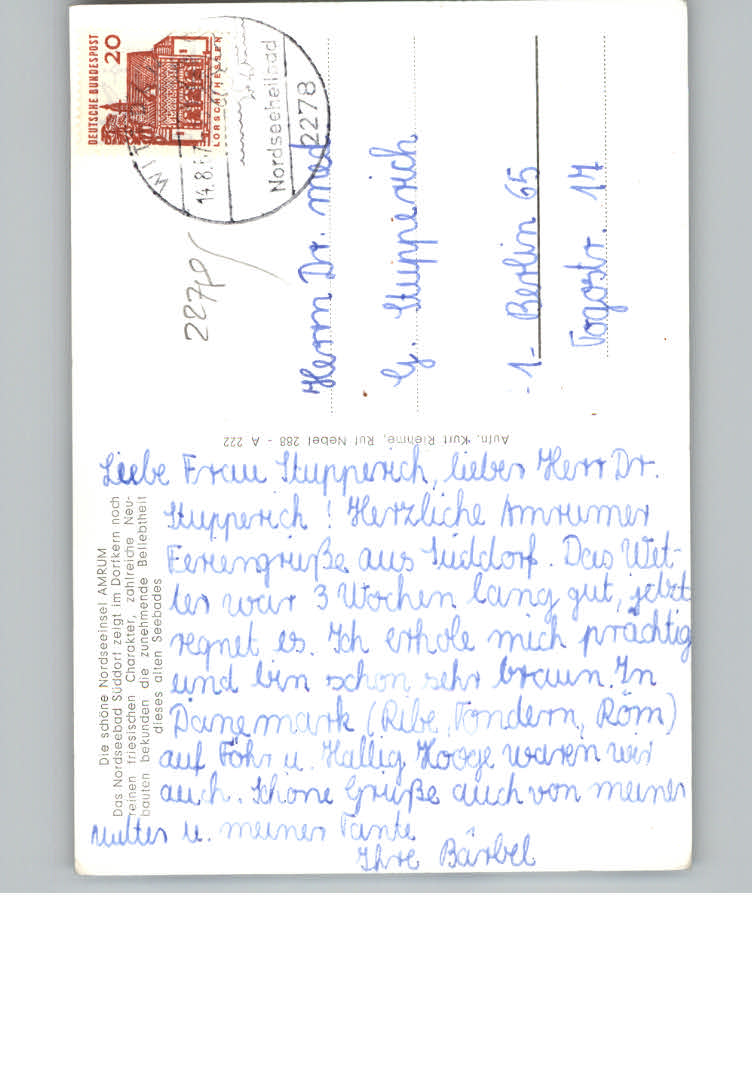 DEUTSCHE BUNDESPOST
20
LORSCH/HESSEN
14.8.67
Nordseeheilbad
2278
2270
Herrn Dr. med.
G. Stupperich
-1- Berlin 65
Togostr. 17
Aufn. Kurt Riehme, Ruf Nebel 288 - A 222
Die schöne Nordseeinsel AMRUM
Das Nordseebad Süddorf zeigt im Dorfkern noch
reinen friesischen Charakter, zahlreiche Neu-
bauten bekunden die zunehmende Beliebtheit
dieses alten Seebades
Liebe Frau Stupperich, lieber Herr Dr.
Stupperich! Herzliche Amrumer
Feriengrüße aus Süddorf. Das Wet-
ter war 3 Wochen lang gut, jetzt
regnet es. Ich erhole mich prächtig
und bin schon sehr braun. In
Dänemark (Ribe, Tondern, Röm)
auf Föhr u. Hallig Hooge waren wir
auch. Schöne Grüße auch von meiner
Mutter u. meiner Tante
Ihre Bärbel